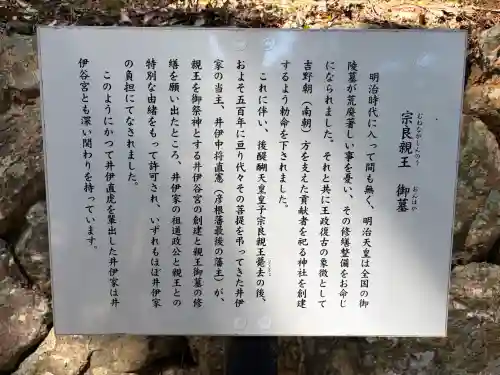 宗良親王 御墓
むねながしんのう おんはか
明治時代に入って間も無く、明治天皇は全国の御
陵墓が荒廃著しい事を憂い、その修繕整備をお命じ
になられました。それと共に王政復古の象徴として
吉野朝(南朝)方を支えた貢献者を祀る神社を創建
するよう勅命を下されました。
これに伴い、後醍醐天皇皇子宗良親王薨去の後、
およそ五百年に亘り代々その菩提を弔ってきた井伊
家の当主、井伊中将直憲(彦根藩最後の藩主)が、
親王を御祭神とする井伊谷宮の創建と親王御墓の修
繕を願い出たところ、井伊家の祖道政公と親王との
特別な由緒をもって許可され、いずれもほぼ井伊家
の負担にてなされました。
このようにかつて井伊直虎を輩出した井伊家は井
伊谷宮とも深い関わりを持っています。